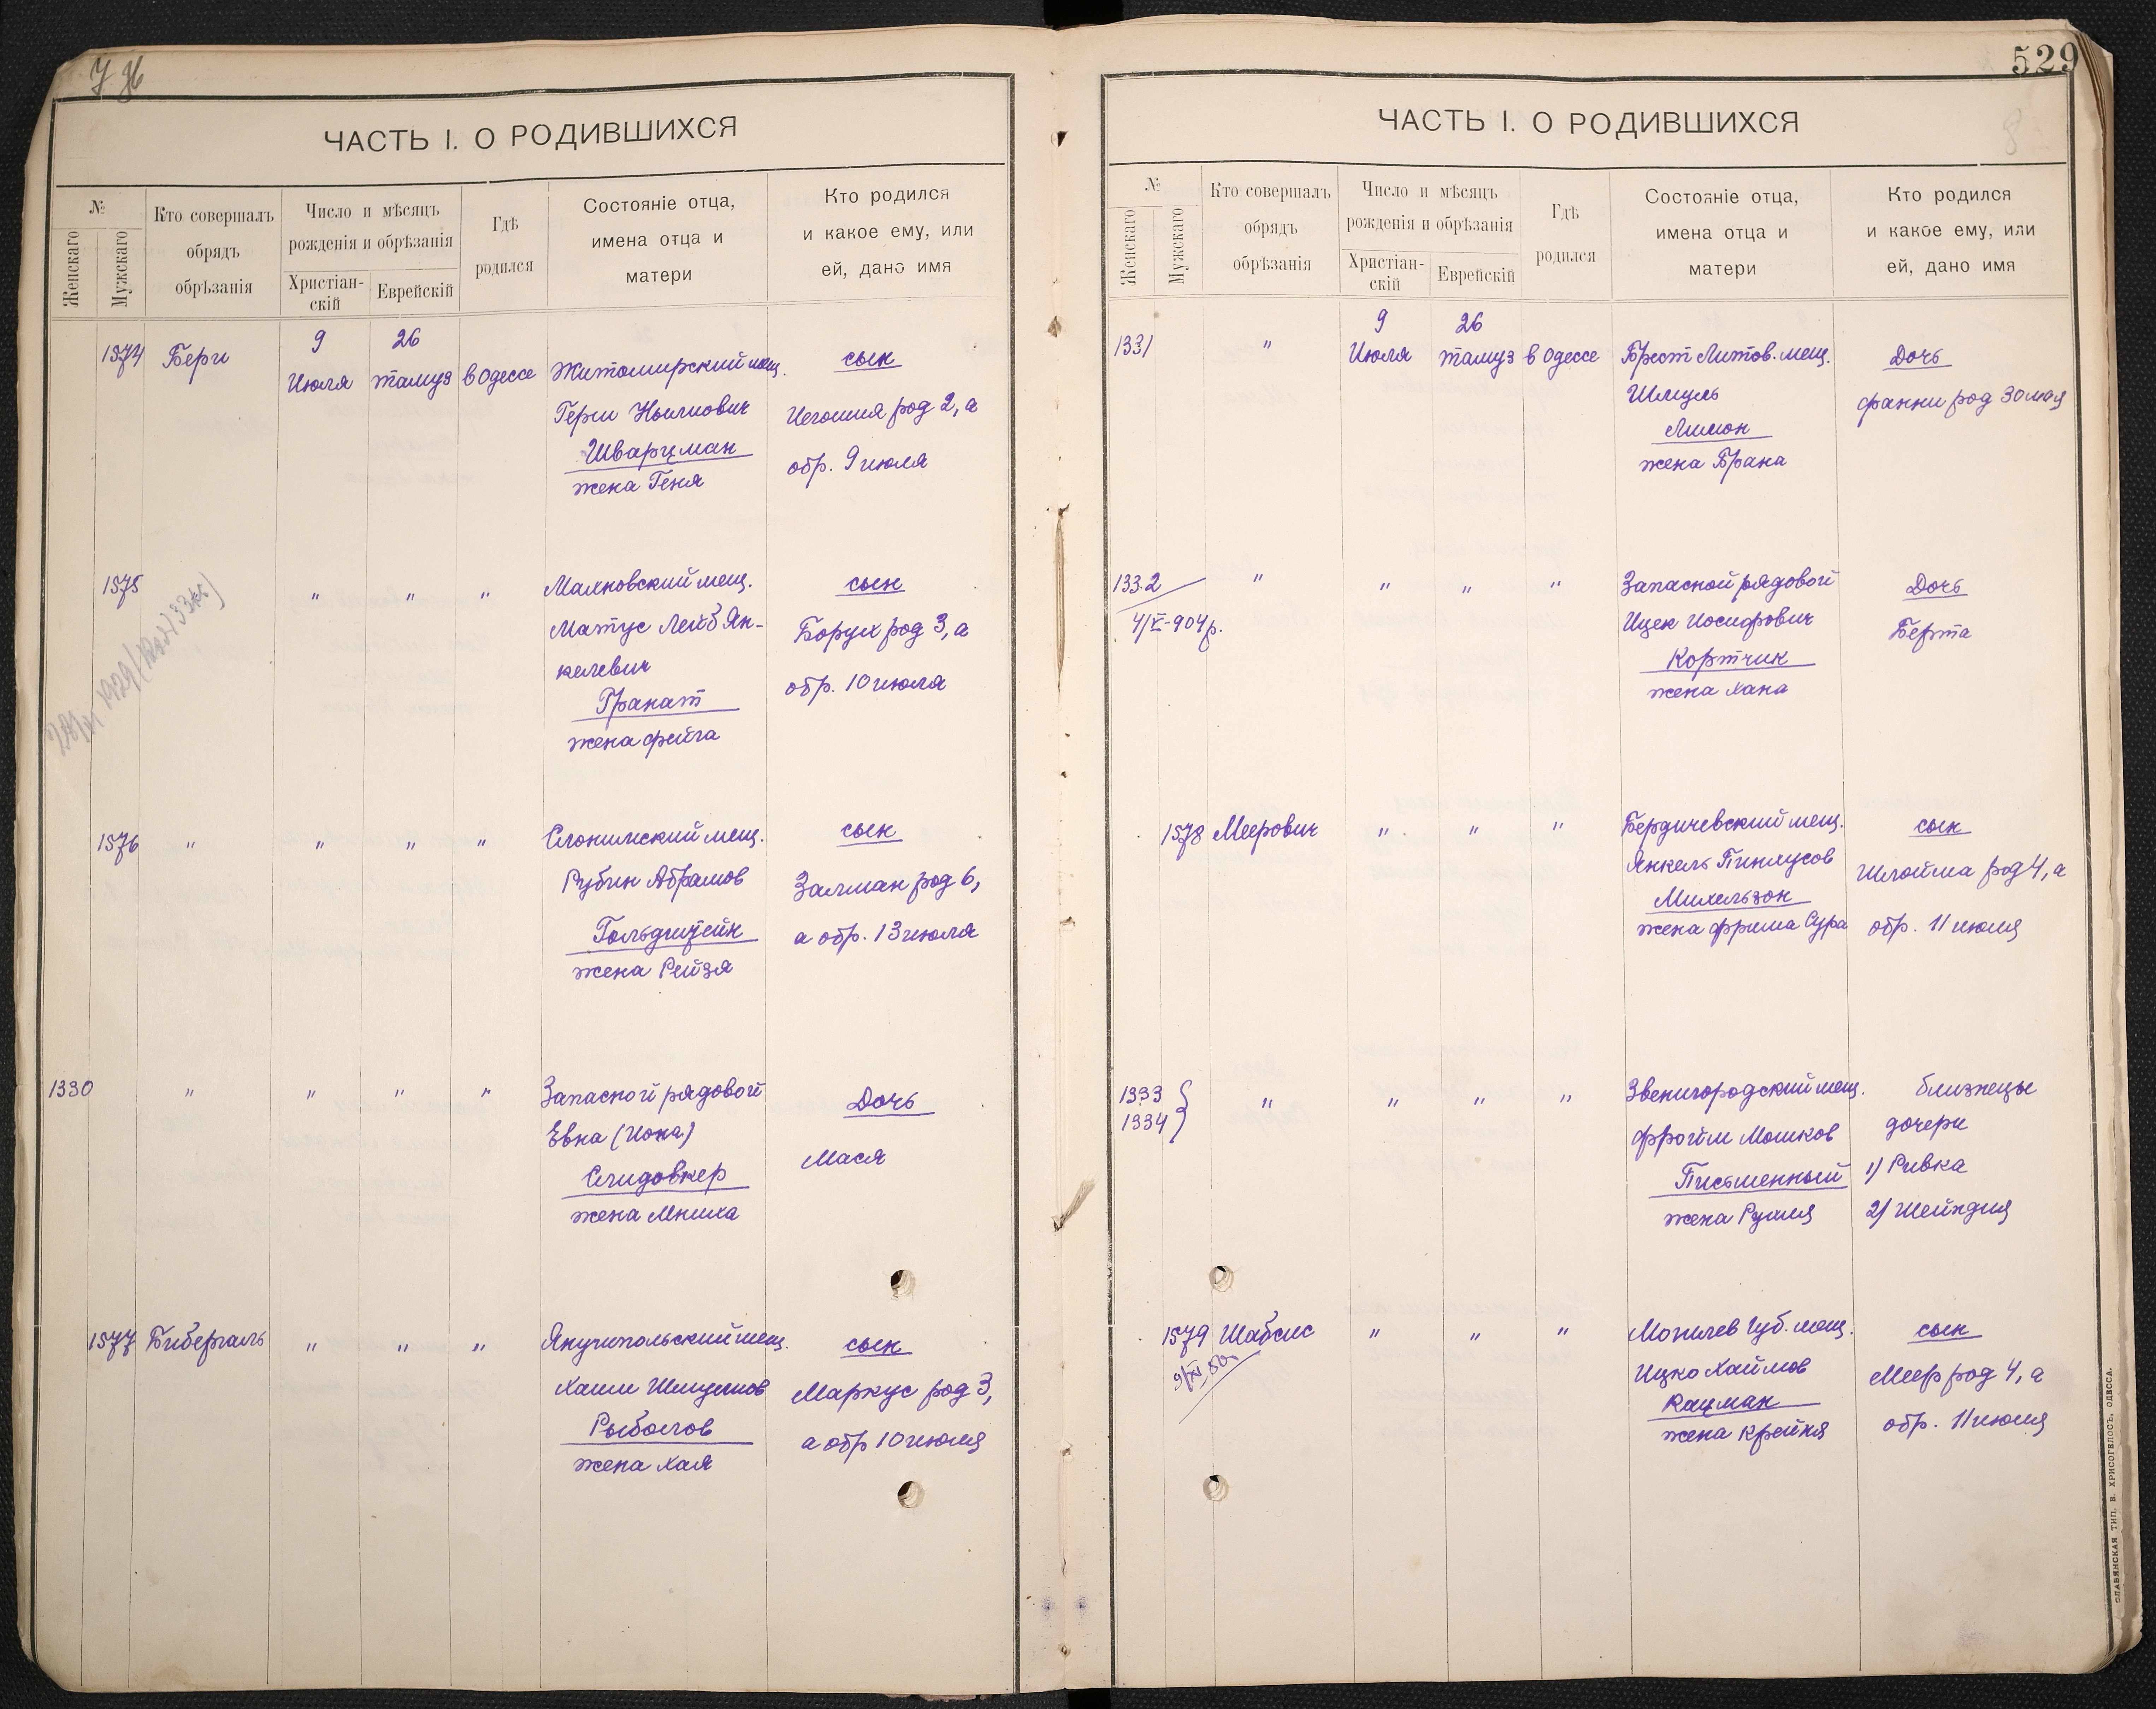 529
ЧАСТЬ I. О РОДИВШИХСЯ
№
Женскаго
Мужскаго
Кто совершалъ
обрядъ
обрѣзанія
Число и мѣсяцъ
рожденія и обрѣзанія
Христіан-
скій
Еврейскій
Гдѣ
родился
Состояніе отца,
имена отца и
матери
Кто родился
и какое ему, или
ей, дано имя
1574 Берш
9 26
Июля тамуз в Одессе
Житомирский мещ.
Герш Ньюмович
Шварцман
жена Геня
сын
Иегошия род 2, а
обр. 9 июля
1575 " " "
Маяновский мещ.
Матус Лейб Ян-
келевич
Гранат
жена Фейга
сын
Борух род 3, а
обр. 10 июля
1576 " " " "
Слонимский мещ.
Рубин Абрамов
Гольдштейн
жена Рейзя
сын
Залман род 6,
а обр. 13 июля
1330 " " " "
Запасной рядовой
Евна (Иона)
Слидовкер
жена Мниха
Дочь
Мася
1577 Бибергаль " " "
Янушпольский мещ.
Хаим Шмулиов
Рыболов
жена Хая
сын
Маркус род 3,
а обр 10 июля
ЧАСТЬ I. О РОДИВШИХСЯ
8
№
Женскаго
Мужскаго
Кто совершалъ
обрядъ
обрѣзанія
Число и мѣсяцъ
рожденія и обрѣзанія
Христіан-
скій
Еврейскій
Гдѣ
родился
Состояніе отца,
имена отца и
матери
Кто родился
и какое ему, или
ей, дано имя
1331 "
9 26
Июля тамуз в Одессе
Брест Литов. мещ.
Шмуль
Лимон
жена Брана
Дочь
Фанни род 30 мая
1332 " " " "
4/X-904 р.
Запасной рядовой
Ицек Иосифович
Кортчик
жена Хана
Дочь
Берта
1578 Меерович " " "
Бердичевский мещ.
Янкель Пинхусов
Михельзон
жена Фрима Сура
сын
Шлойма род 4, а
обр. 11 июля
1333
1334 " " " "
Звенигородский мещ.
Фройм Мошков
Письменный
жена Рухля
близнецы
дочери
1) Ривка
2) Шейндля
1579 Шабсис " " "
Могилев Губ. мещ.
Ицко Хаймов
Кацман
жена Крейня
сын
Меер род 4, а
обр. 11 июля
СЛАВЯНСКАЯ ТИП. В. ХРИСОГЕЛОСЪ, ОДЕССА.